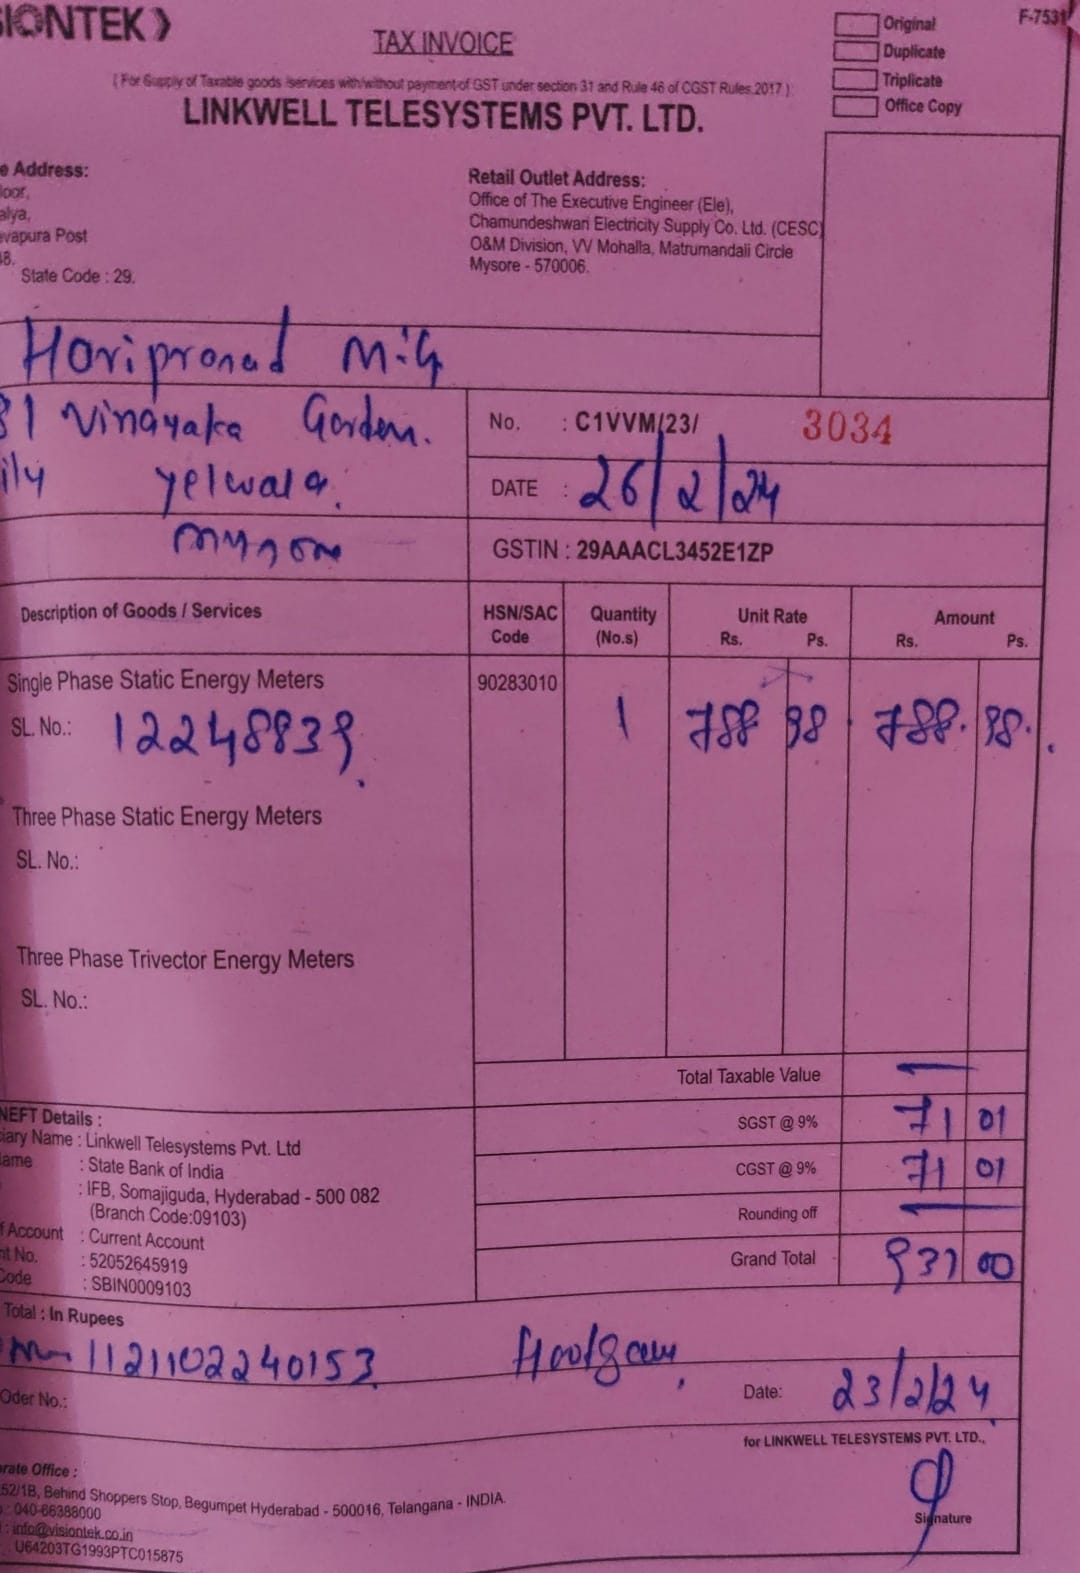 SIONTEK
TAX INVOICE
Original
F-7531
Duplicate
Triplicate
Office Copy
( For Supply of Taxable goods /services with/without payment of GST under section 31 and Rule 46 of CGST Rules.2017 )
LINKWELL TELESYSTEMS PVT. LTD.
e Address:
loor,
alya,
evapura Post
48.
State Code : 29.
Retail Outlet Address:
Office of The Executive Engineer (Ele),
Chamundeshwari Electricity Supply Co. Ltd. (CESC)
O&M Division, VV Mohalla, Matrumandali Circle
Mysore - 570006.
Hariprasad M.G
81 Vinayaka Garden.
ily yelwala.
mysore
No. : C1VVM/23/ 3034
DATE : 26/2/24
GSTIN : 29AAACL3452E1ZP
Description of Goods / Services HSN/SAC Code Quantity (No.s) Unit Rate Rs. Ps. Amount Rs. Ps.
Single Phase Static Energy Meters 90283010
SL. No.: 12248839 1 788 98 788. 98.
Three Phase Static Energy Meters
SL. No.:
Three Phase Trivector Energy Meters
SL. No.:
Total Taxable Value
SGST @ 9% 71 01
CGST @ 9% 71 01
Rounding off
Grand Total 931 00
NEFT Details :
ciary Name : Linkwell Telesystems Pvt. Ltd
ame : State Bank of India
: IFB, Somajiguda, Hyderabad - 500 082
(Branch Code:09103)
f Account : Current Account
nt No. : 52052645919
Code : SBIN0009103
Total : In Rupees
1121102240153
Oder No.:
Date: 23/2/24
for LINKWELL TELESYSTEMS PVT. LTD.,
Signature
orate Office :
52/1B, Behind Shoppers Stop, Begumpet Hyderabad - 500016, Telangana - INDIA.
: 040-66388000
: info@visiontek.co.in
: U64203TG1993PTC015875